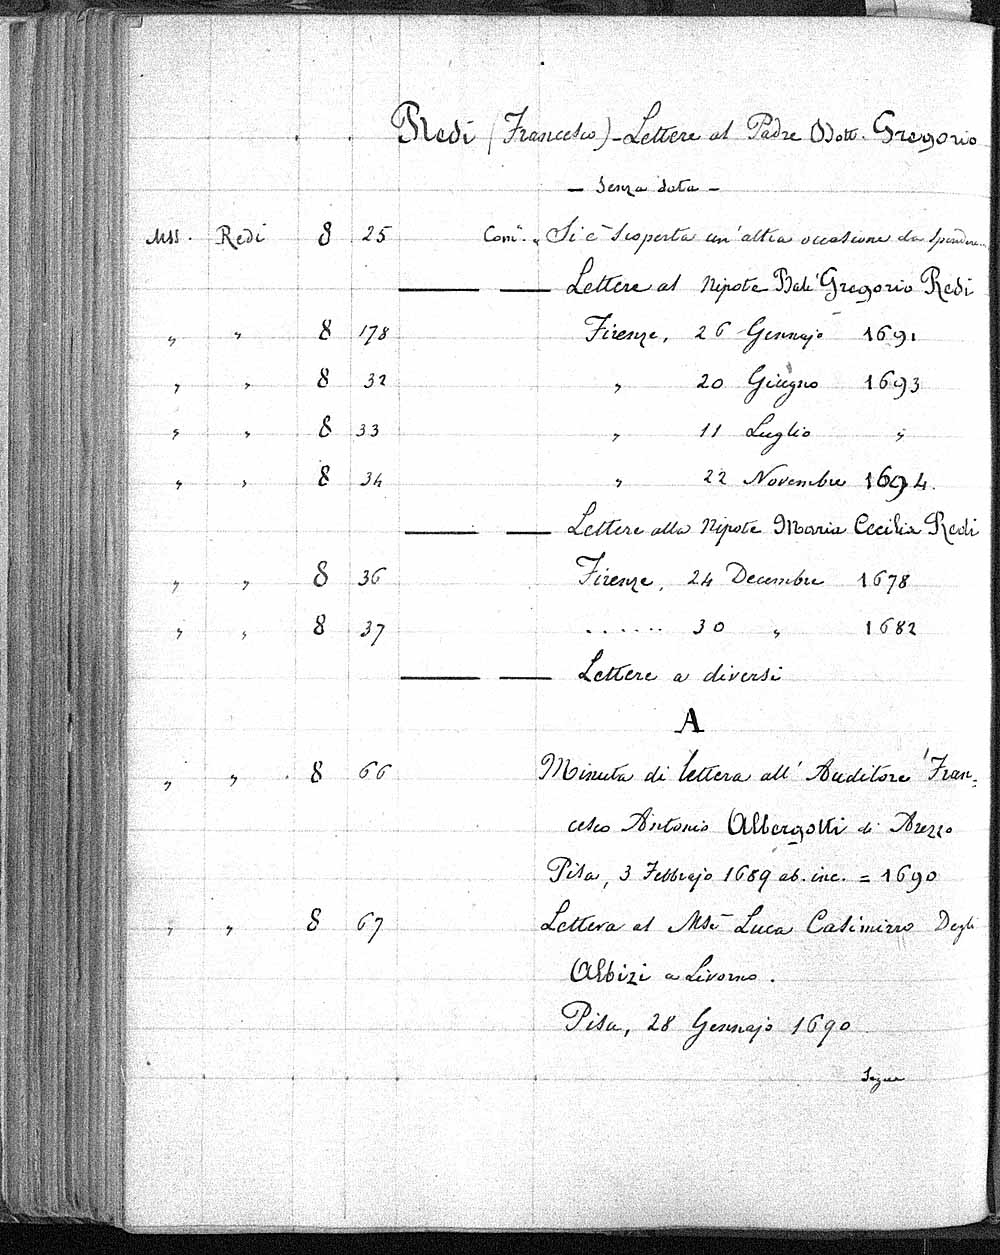 Redi (Francesco) - Lettere al Padre Dott. Gregorio
- Senza data -
Mss. Redi 8 25 Com. „ Si è scoperta un'altra occasione da spendere...
Lettere al Nipote Balì Gregorio Redi
„ „ 8 178 Firenze, 26 Gennajo 1691
„ „ 8 32 „ 20 Giugno 1693
„ „ 8 33 „ 11 Luglio „
„ „ 8 34 „ 22 Novembre 1694.
Lettere alla Nipote Maria Cecilia Redi
„ „ 8 36 Firenze, 24 Decembre 1678
„ „ 8 37 ...... 30 „ 1682
Lettere a diversi
A
„ „ 8 66 Minuta di lettera all'Auditore Fran=
cesco Antonio Albergotti di Arezzo
Pisa, 3 Febbrajo 1689 ab. inc. = 1690
„ „ 8 67 Lettera al Mse Luca Casimirro Degli
Albizi a Livorno.
Pisa, 28 Gennajo 1690
Segue